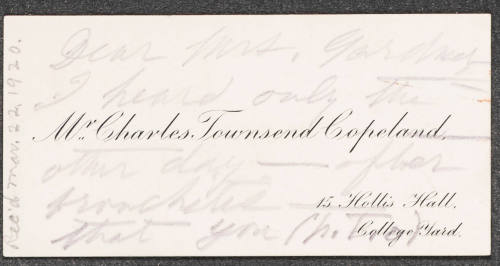 Rec'd Mar. 22, 1920.
Dear Mrs. Gardner
I heard only the
Mr. Charles Townsend Copeland,
other day — after
15 Hollis Hall,
bronchitis —
College Yard.
that you (P.T.O.)